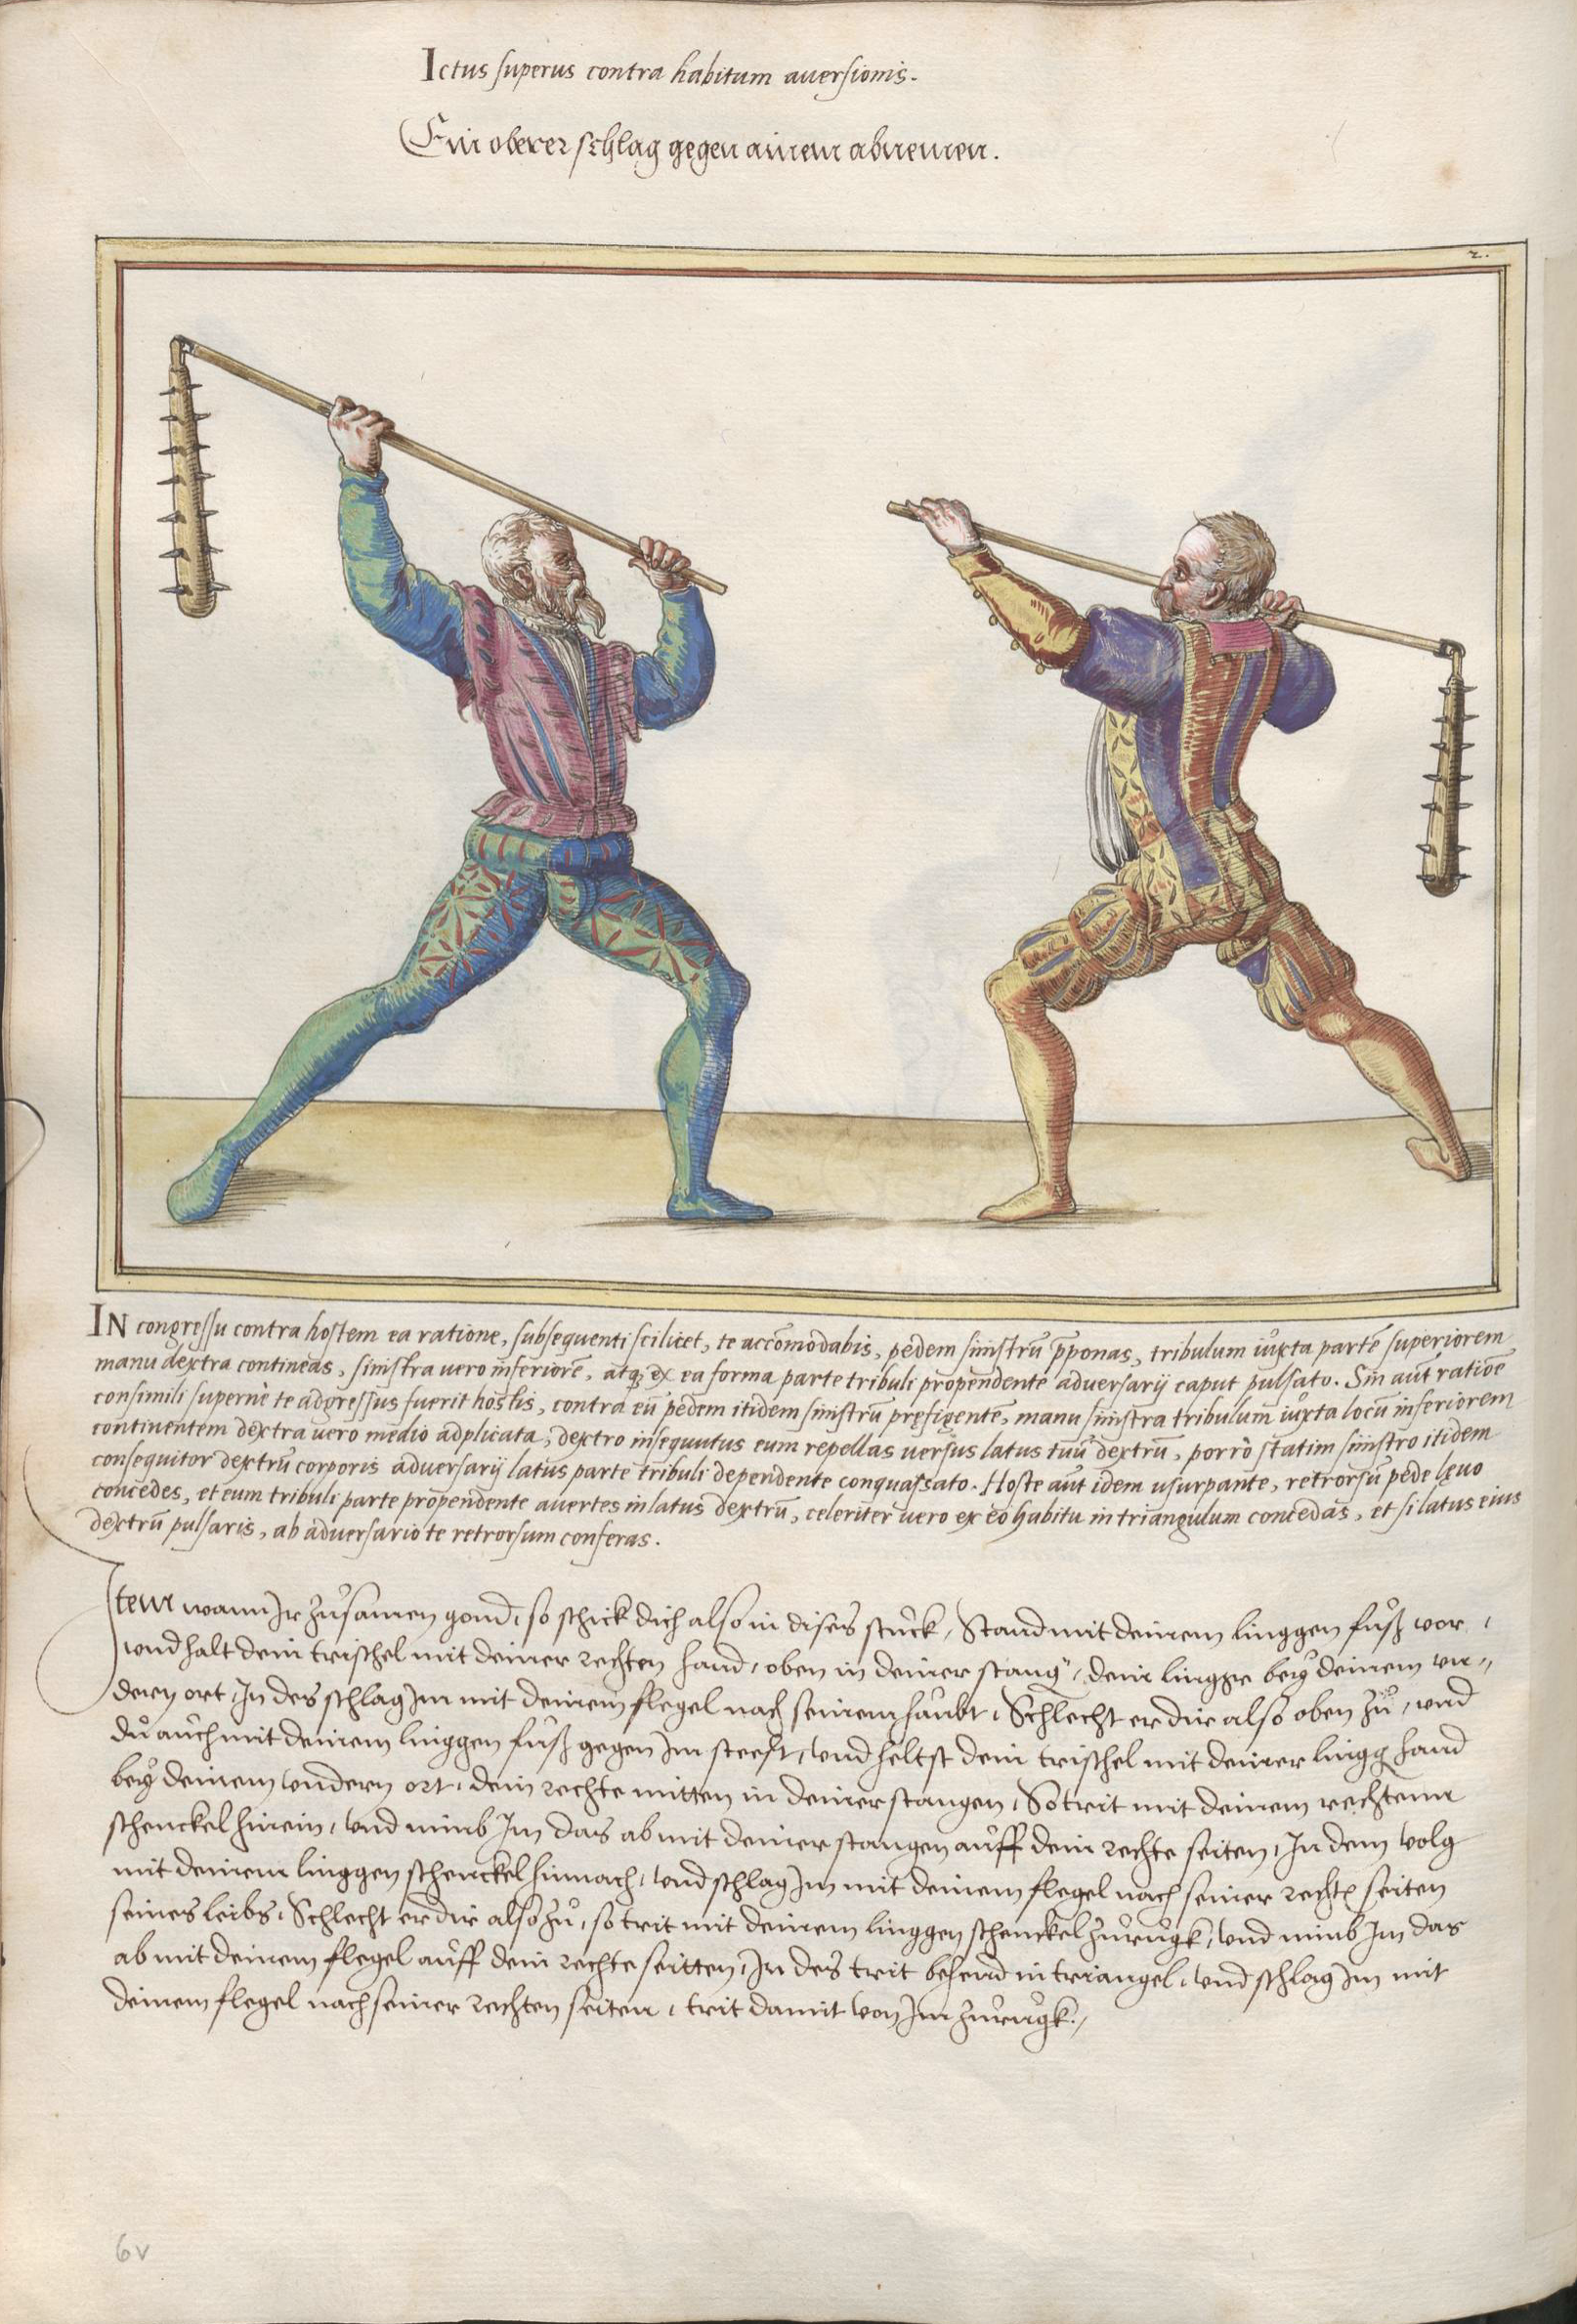 Ictus superus contra habitum auersionis.
Ein oberer schlag gegen ainem abnemen.
2.
IN congressu contra hostem ea ratione, subsequenti scilicet, te accōmodabis, pedem sinistrū p̄ponas, tribulum iuxta partē superiorem
manu dextra contineas, sinistra vero inferiorē, atq; ex ea forma parte tribuli propendente adversarij caput pulsato. Sin aut̄ ratiōe
consimili supernè te adgressus fuerit hostis, contra eū pedem itidem sinistrū pręfigentē, manu sinistra tribulum iuxta locū inferiorem
continentem dextra uero medio adplicata, dextro insequutus eum repellas uersus latus tuū dextrū, porrò statim sinistro itidem
consequitor dextrū corporis adversarij latus parte tribuli dependente conquassato. Hoste aut̄ idem usurpante, retrorsū pede lęuo
concedes, et eum tribuli parte propendente auertes in latus dextrū, celeriter vero ex eo habitu in triangulum concedas, et si latus eius
dextrū pulsaris, ab adversario te retrorsum conferas.
Item wann Ir zůsamen gond, so schick dich also in dises stuck, Stand mit deinem linggen fůß vor,
vnd halt dein trischel mit deiner rechten hand, oben in deiner stang, dein lingge bey deinem vn〃
dern ort, In des schlag Im mit deinem flegel nach seinem haubt, Schlecht er dir also oben zů, vnd
dů auch mit deinem linggen fůß gegen Im steest, vnd heltst dein trischel mit deiner lingg hand
bey deinem vndern ort, dein rechte mitten in deiner stangen, So trit mit deinem rechtem
schenckel hinein, vnd nimb Im das ab mit deiner stangen auff dein rechte seiten, In dem volg
mit deinem linggen schenckel hinnach, vnd schlag Im mit deinem flegel nach seiner rechtē seiten
seines leibs, Schlecht er dir also zů, so trit mit deinem linggen schenckel zůrugk, vnd nimb Im das
ab mit deinem flegel auff dein rechte seitten, In des trit behend in triangel, vnd schlag Im mit
deinem flegel nach seiner rechten seiten, trit damit von Im zůrugk.
6v